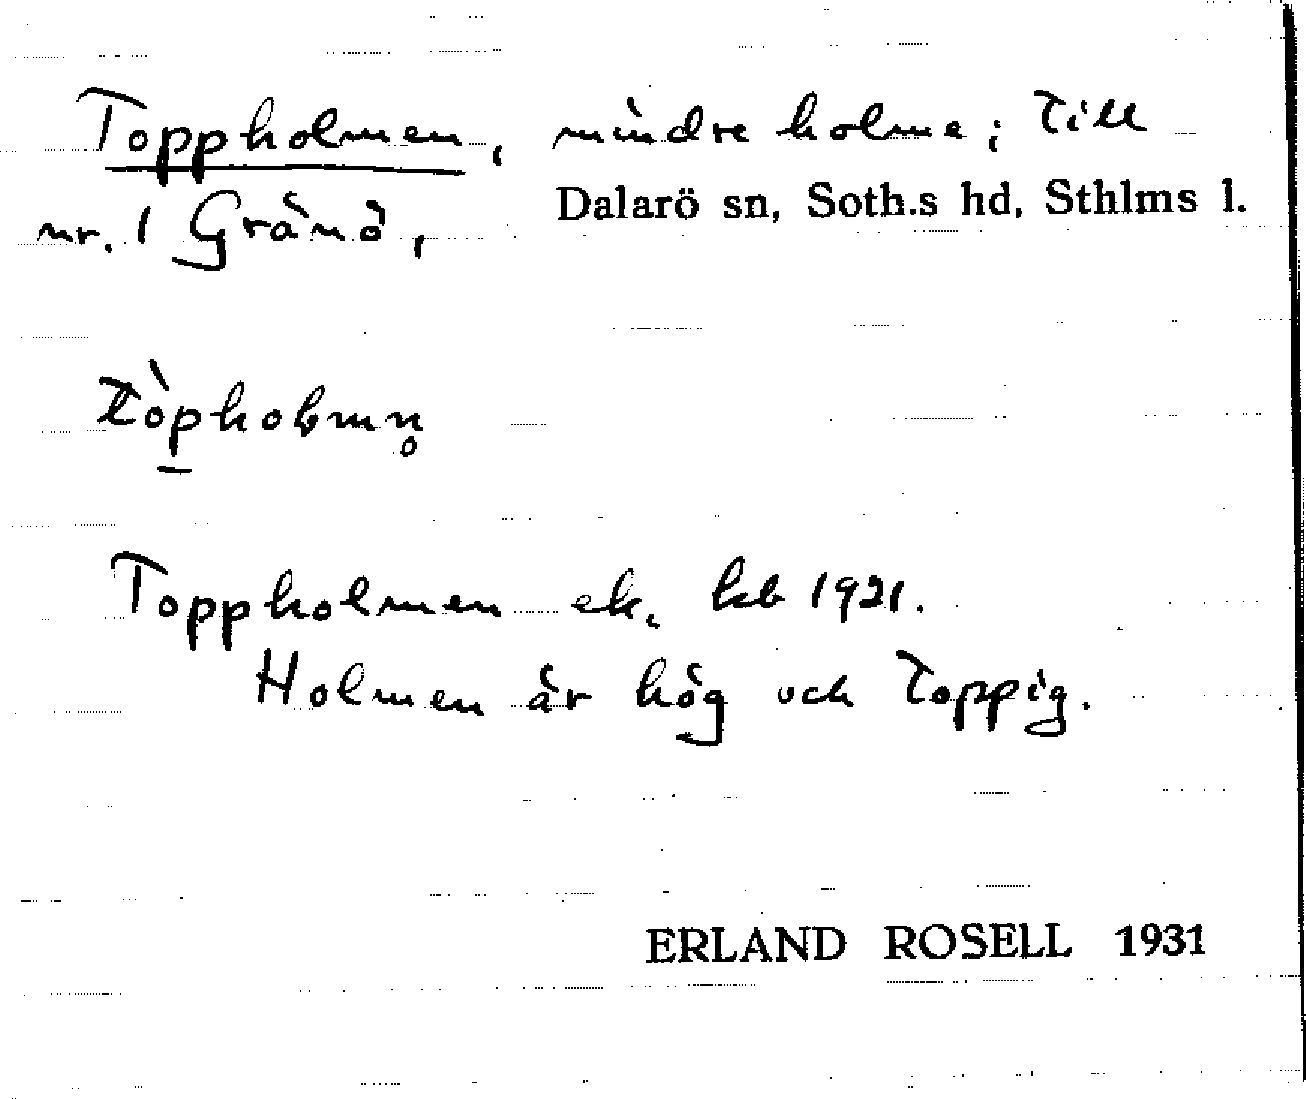 Toppholmen, mindre holme; till
nr. 1 Gränö, Dalarö sn, Soth.s hd, Sthlms l.
Toppholmen ek. kb 1921.
Holmen är hög och toppig.
ERLAND ROSELL 1931